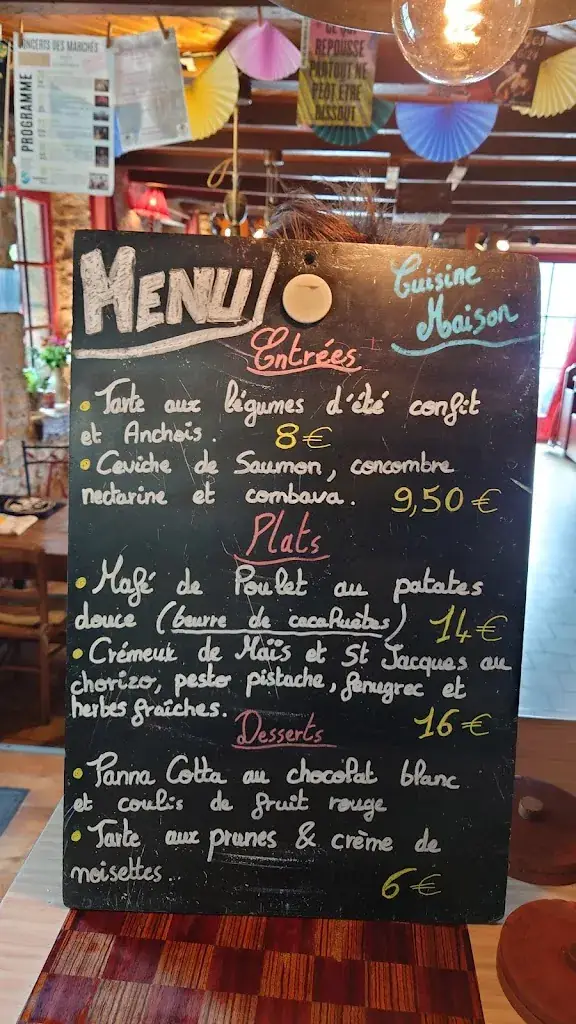 CONCERTS DES MARCHÉS
PROGRAMME
CE QUI
REPOUSSE
PARTOUT NE
PEUT ETRE
DISSOUT
MENU
Cuisine
Maison
Entrées
• Tarte aux légumes d'été confit
et Anchois. 8€
• Ceviche de Saumon, concombre
nectarine et combava. 9,50 €
Plats
• Mafé de Poulet au patates
douce (beurre de cacahuètes) 14€
• Crémeux de Maïs et St Jacques au
chorizo, pesto pistache, fenugrec et
herbes fraîches. 16€
Desserts
• Panna Cotta au chocolat blanc
et coulis de fruit rouge
• Tarte aux prunes & crème de
noisettes.. 6€